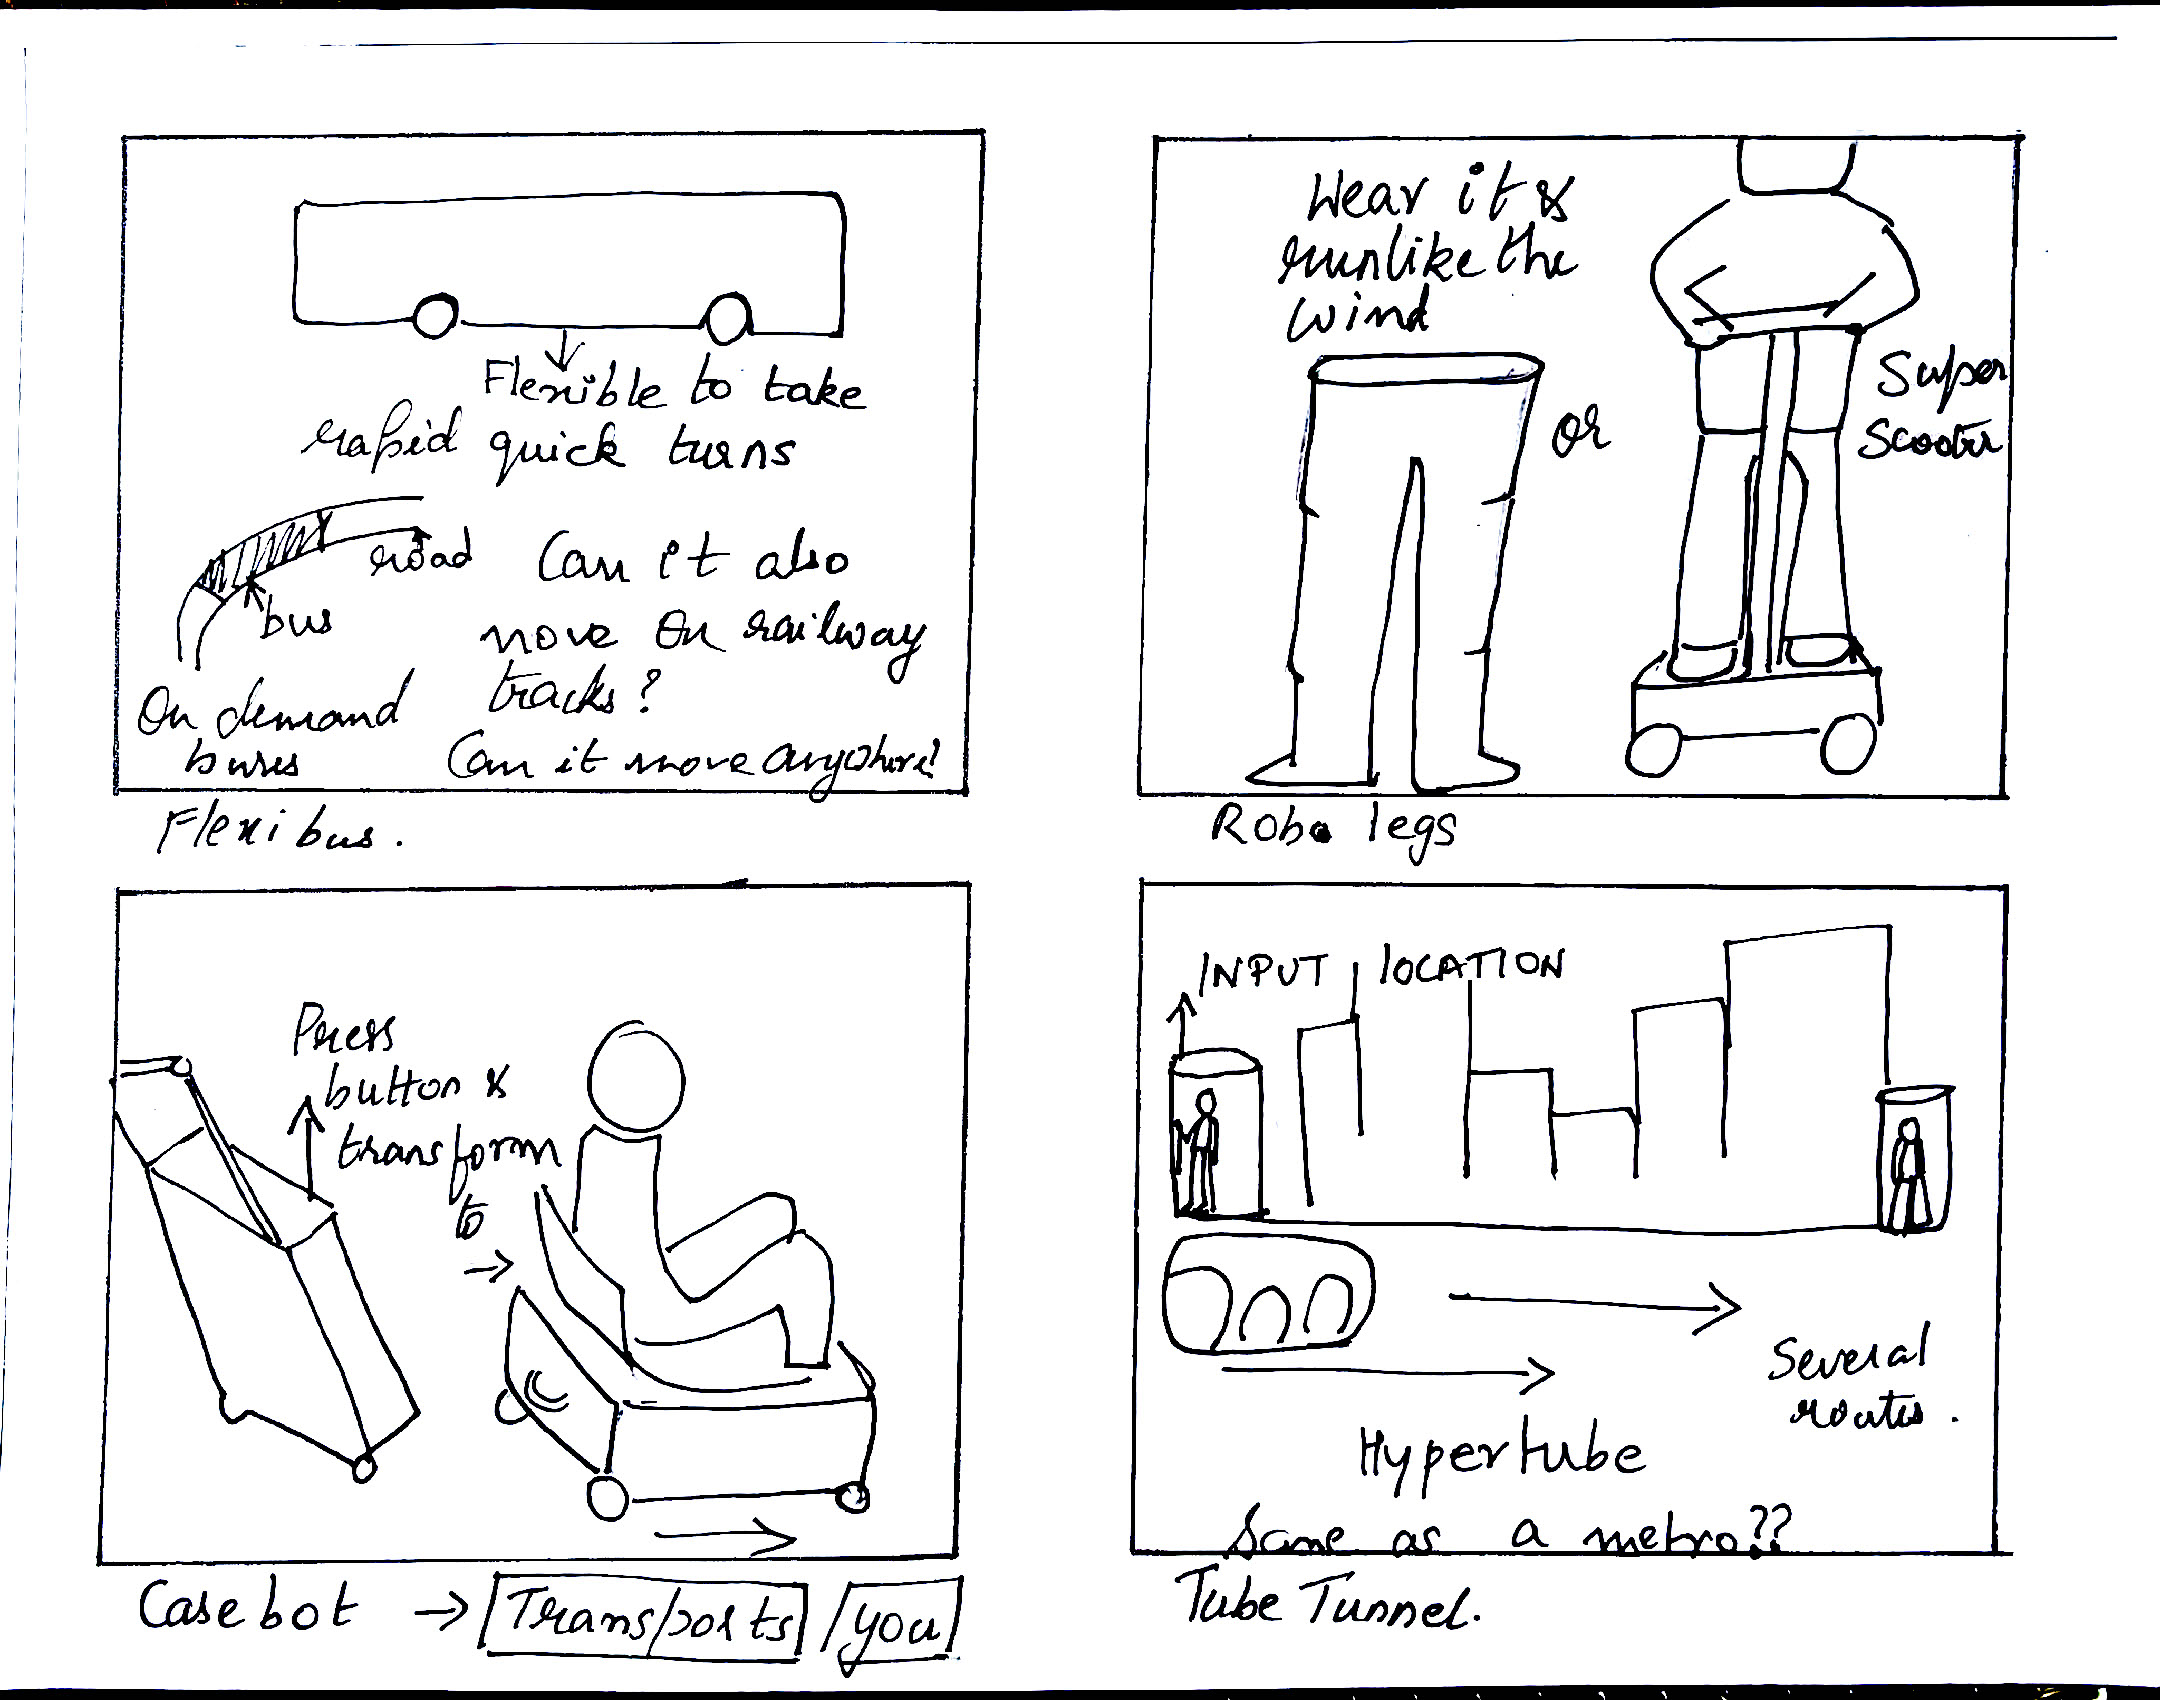 Flexible to take
rapid quick turns
road
bus
Can it also
move on railway
tracks?
On demand
buses
Can it move anywhere?
Flexibus.
Wear it &
run like the
wind
or
Super
Scooter
Robo legs
Press
button &
transform
to
Casebot → Transports you
INPUT LOCATION
Several
routes.
Hypertube
Same as a metro??
Tube Tunnel.